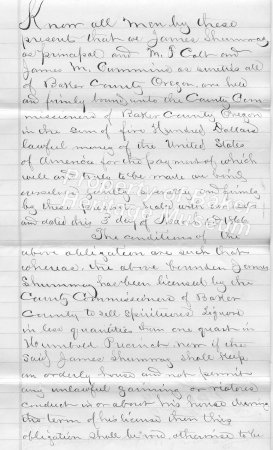 Know all Men by these
present that we James Shumway
as principal and M. S Colt and
James M. Cummins as sureties all
of Baker County Oregon, are held
and firmly bound unto the County Com
missioners of Baker County Oregon
in the sum of five Hundred Dollars
lawful money of the United States
of America for the payment of which
well and truly to be made we bind
ourselves jointly severally and firmly
by these presents
and dated this 3 day of 1866
The conditions of the
above obligation are such that
whereas the above bounden James
Shumway has been licensed by the
County Commissioners of Baker
County to sell Spirituous Liquors
in less quantities than one quart in
Precinct now if the
said James Shumway shall keep
an orderly house and not permit
any unlawful gaming or riotous
conduct in or about his house during
the term of his license then this
obligation shall be void, otherwise to be